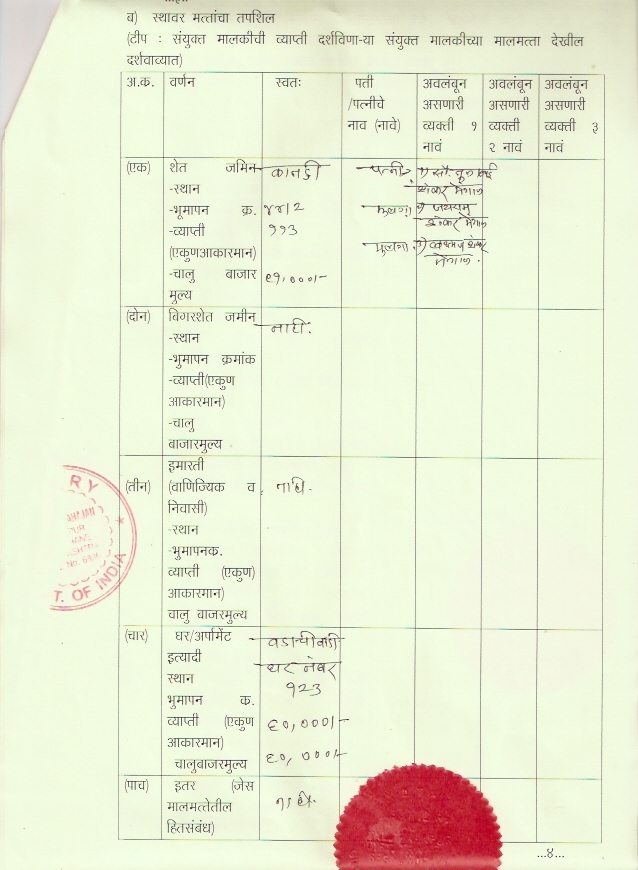 ब) स्थावर मत्तांचा तपशिल
(टीप : संयुक्त मालकीची व्याप्ती दर्शविणा-या संयुक्त मालकीच्या मालमत्ता देखील
दर्शवाव्यात)
अ.क. वर्णन स्वतः पती /पत्नीचे नाव (नावे) अवलंबून असणारी व्यक्ती १ नावं अवलंबून असणारी व्यक्ती २ नावं अवलंबून असणारी व्यक्ती ३ नावं
(एक) शेत जमिन कानडी पत्नी १) सौ.
-स्थान शंकर
-भूमापन क्र. ४४|2 मुलगा २) जयराम
-व्याप्ती ११३ शंकर
(एकुणआकारमान) मुलगा ३)
-चालु बाजार ६१,०००/-
मुल्य
(दोन) बिगरशेत जमीन नाही.
-स्थान
-भुमापन क्रमांक
-व्याप्ती(एकुण
आकारमान)
-चालु
बाजारमुल्य
इमारती
(तीन) (वाणिज्यिक व नाही.
निवासी)
-स्थान
-भुमापनक.
व्याप्ती (एकुण)
आकारमान)
चालु बाजरमुल्य
(चार) घर/अर्पामेंट वडाचीवाडी
इत्यादी घर नंबर
स्थान १२३
भुमापन क.
व्याप्ती (एकुण ६०,०००/-
आकारमान)
चालुबाजरमुल्य ६०,०००/-
(पाच) इतर (जेस नाही.
मालमत्तेतील
हितसंबंध)
...४...
RY
T. OF INDIA